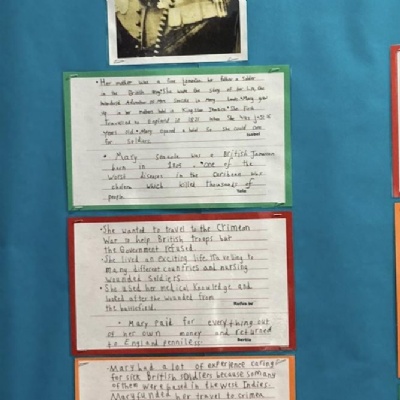 • Her mother was a free Jamaican her father a soldier
in the British army. She wrote the story of her life, the
Wonderful Adventures of Mrs Seacole in Many Lands. • Mary grew
up in her mothers hotel in Kingston Jamaica. • She first
travelled to England in 1821 when she was just 16
years old. • Mary opened a hotel so she could care
for soldiers.
• Mary Seacole was a British Jamaican
born in 1805 . • one of the
worst diseases in the Caribbean was
cholera which killed thousands of
people
• She wanted to travel to the Crimean
War to help British troops but
the Government refused.
• She lived an exciting life, travelling to
many different countries and nursing
wounded soldiers.
• She used her medical knowledge and
looked after the wounded from
the battlefield.
• Mary paid for everything out
of her own money and returned
to England penniless.
• Mary had a lot of experience caring
for sick British soldiers because so many
of them were based in the West Indies.
Mary funded her travel to Crimea